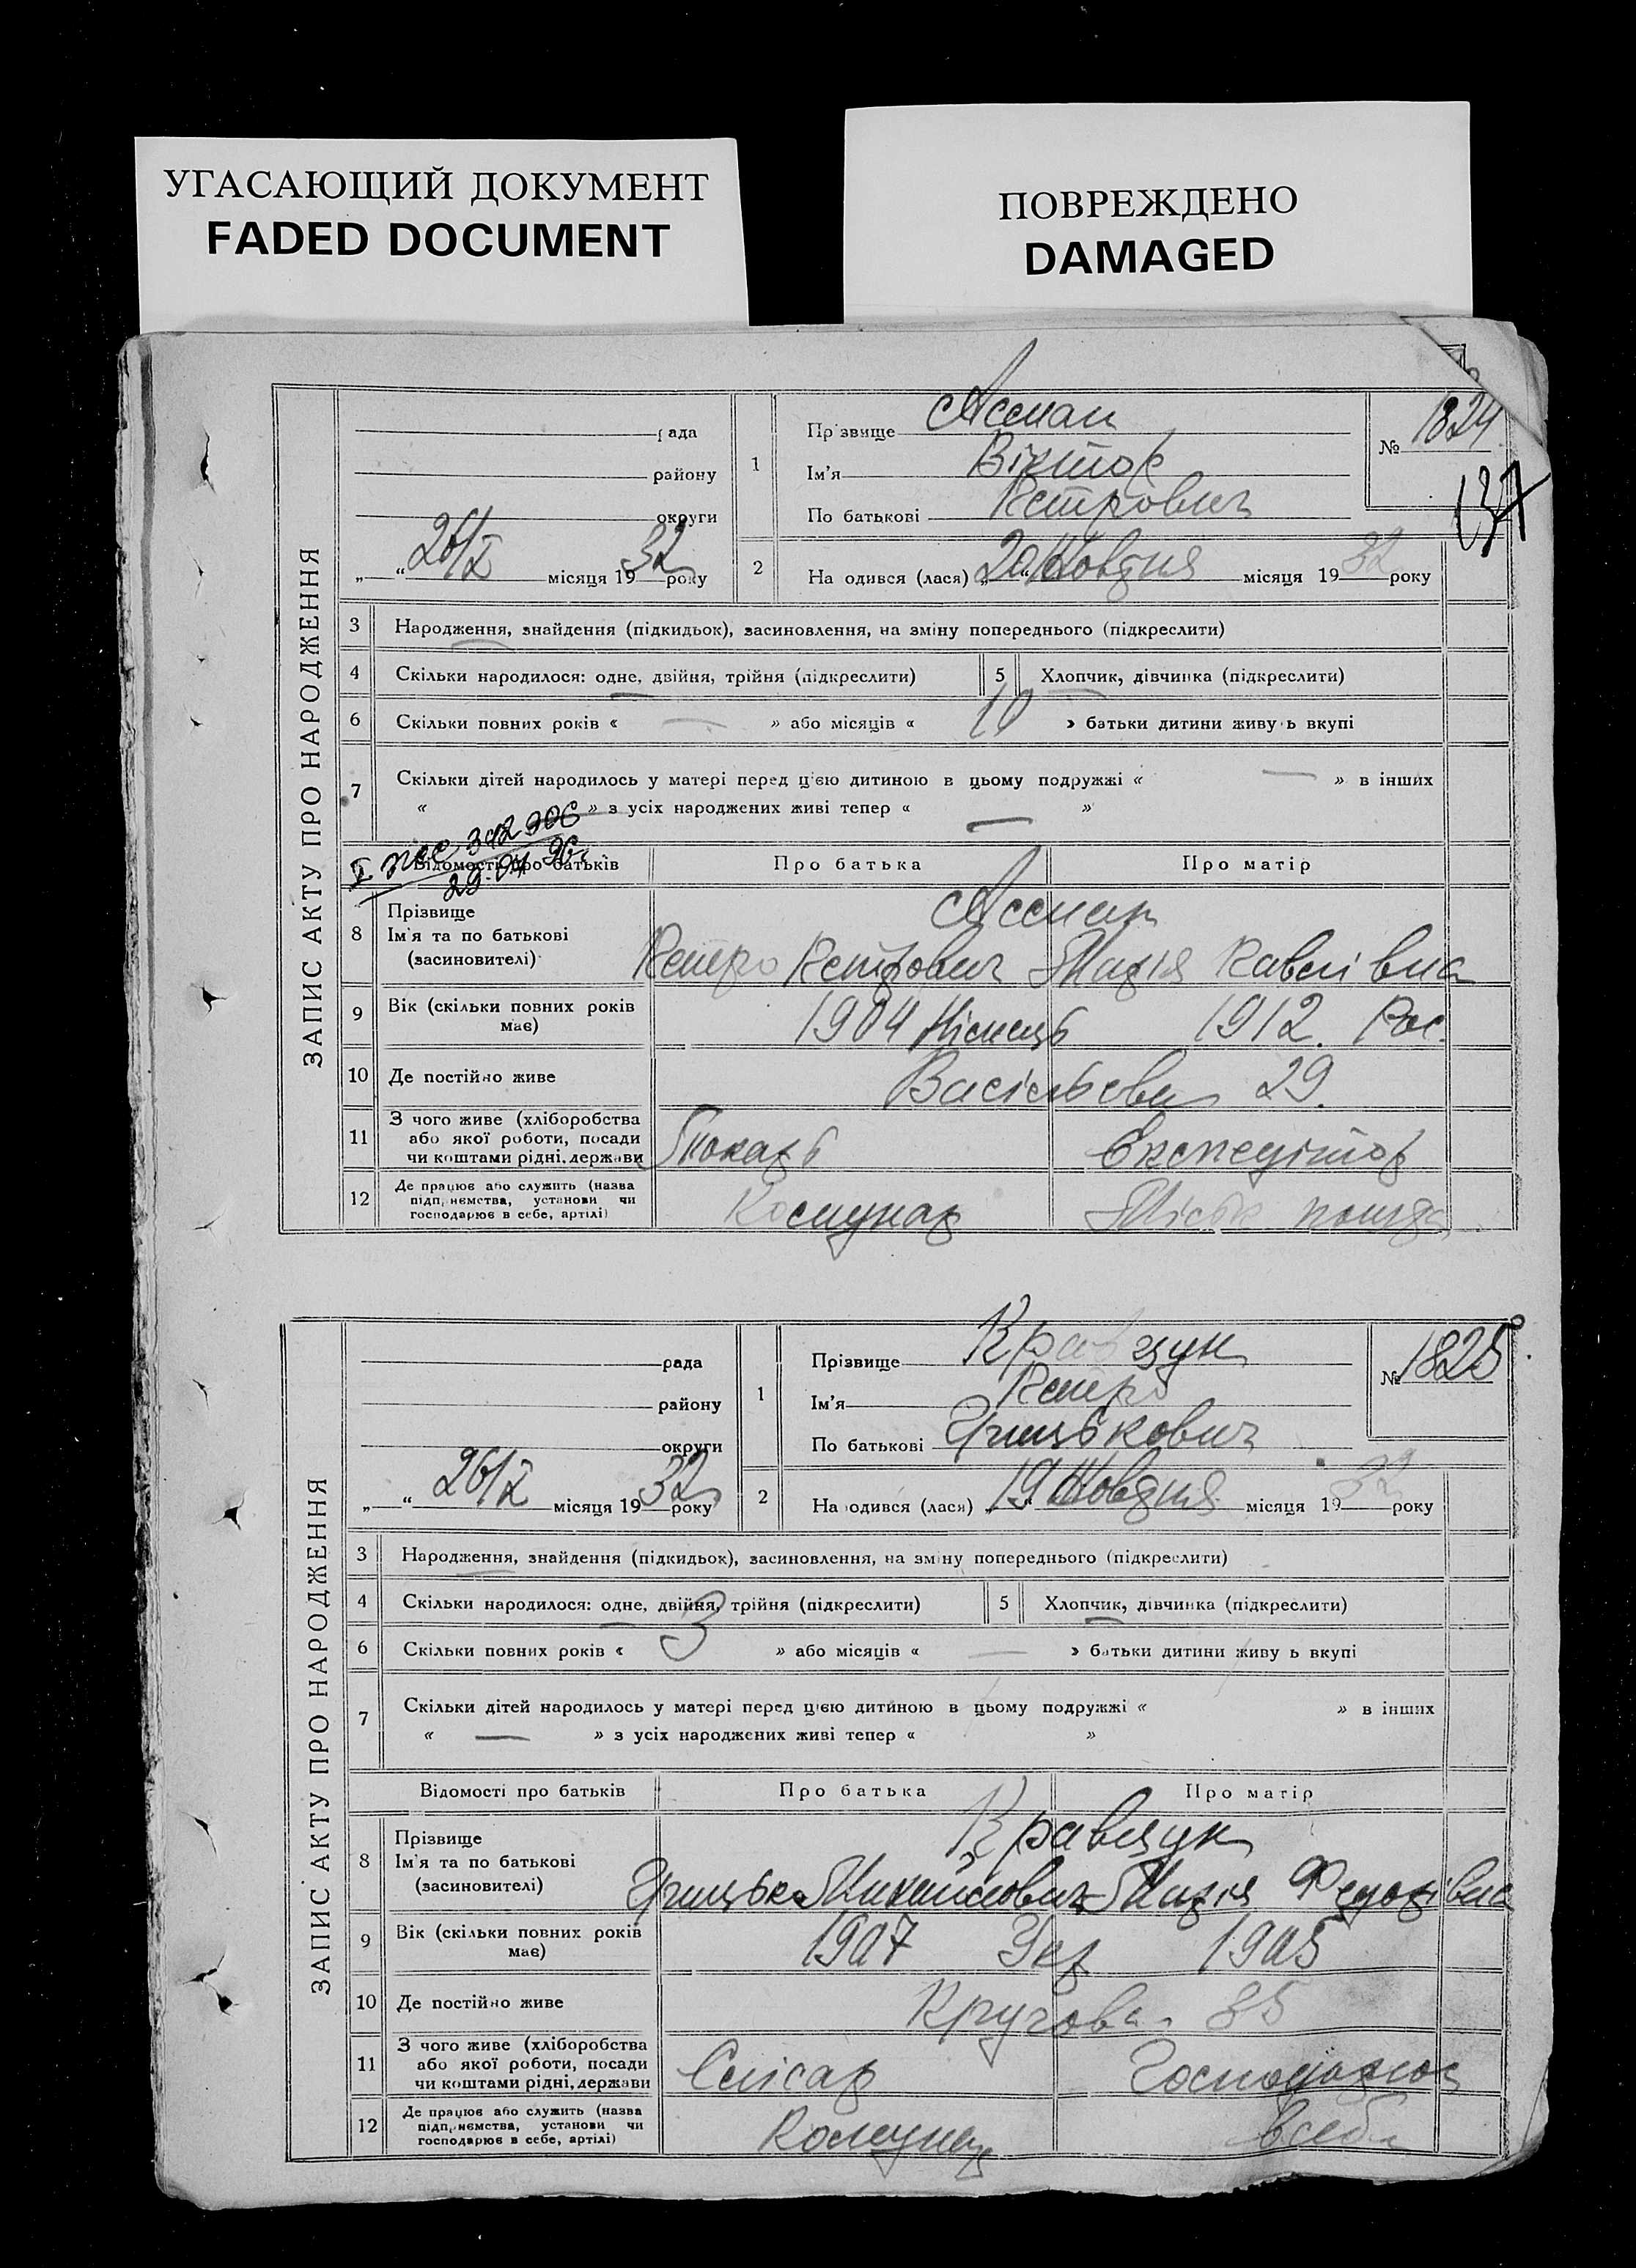 УГАСАЮЩИЙ ДОКУМЕНТ
FADED DOCUMENT
ПОВРЕЖДЕНО
DAMAGED
ЗАПИС АКТУ ПРО НАРОДЖЕННЯ
рада
району
округи
„ “ 26/X місяця 1932 року
1
Прізвище Ассман
Ім'я Віктор
По батькові Петрович
№ 1824
137
2 Народився (лася) „20“ Жовтня місяця 1932 року
3 Народження, знайдення (підкидьок), засиновлення, на зміну попереднього (підкреслити)
4 Скільки народилося: одне, двійня, трійня (підкреслити) 5 Хлопчик, дівчинка (підкреслити)
6 Скільки повних років « — » або місяців « 10 » батьки дитини живуть вкупі
7 Скільки дітей народилось у матері перед цією дитиною в цьому подружжі « — » в інших
« » з усіх народжених живі тепер « — »
Відомості про батьків Про батька Про матір
8 Прізвище
Ім'я та по батькові
(засиновителі)
Ассман
Петро Петрович Марія Павлівна
9 Вік (скільки повних років має) 1904 Німець 1912. Рос.
10 Де постійно живе Васільєва 29.
11 З чого живе (хліборобства
або якої роботи, посади
чи коштами рідні, держави
Токарь Експедітор
12 Де працює або служить (назва
підприємства, установи чи
господарює в себе, артілі)
Комунар Міська пошта
ЗАПИС АКТУ ПРО НАРОДЖЕННЯ
рада
району
округи
„ “ 26/X місяця 1932 року
1
Прізвище Кравчук
Ім'я Петро
По батькові Грицькович
№ 1825
2 Народився (лася) „19“ Жовтня місяця 1932 року
3 Народження, знайдення (підкидьок), засиновлення, на зміну попереднього (підкреслити)
4 Скільки народилося: одне, двійня, трійня (підкреслити) 5 Хлопчик, дівчинка (підкреслити)
6 Скільки повних років « 3 » або місяців « — » батьки дитини живуть вкупі
7 Скільки дітей народилось у матері перед цією дитиною в цьому подружжі « » в інших
« — » з усіх народжених живі тепер « »
Відомості про батьків Про батька Про матір
8 Прізвище
Ім'я та по батькові
(засиновителі)
Кравчук
Грицько Михайлович Марія Федорівна
9 Вік (скільки повних років має) 1907 Укр 1905
10 Де постійно живе Кругова 35
11 З чого живе (хліборобства
або якої роботи, посади
чи коштами рідні, держави
Слісар Господарює
12 Де працює або служить (назва
підприємства, установи чи
господарює в себе, артілі)
Комунар в себе